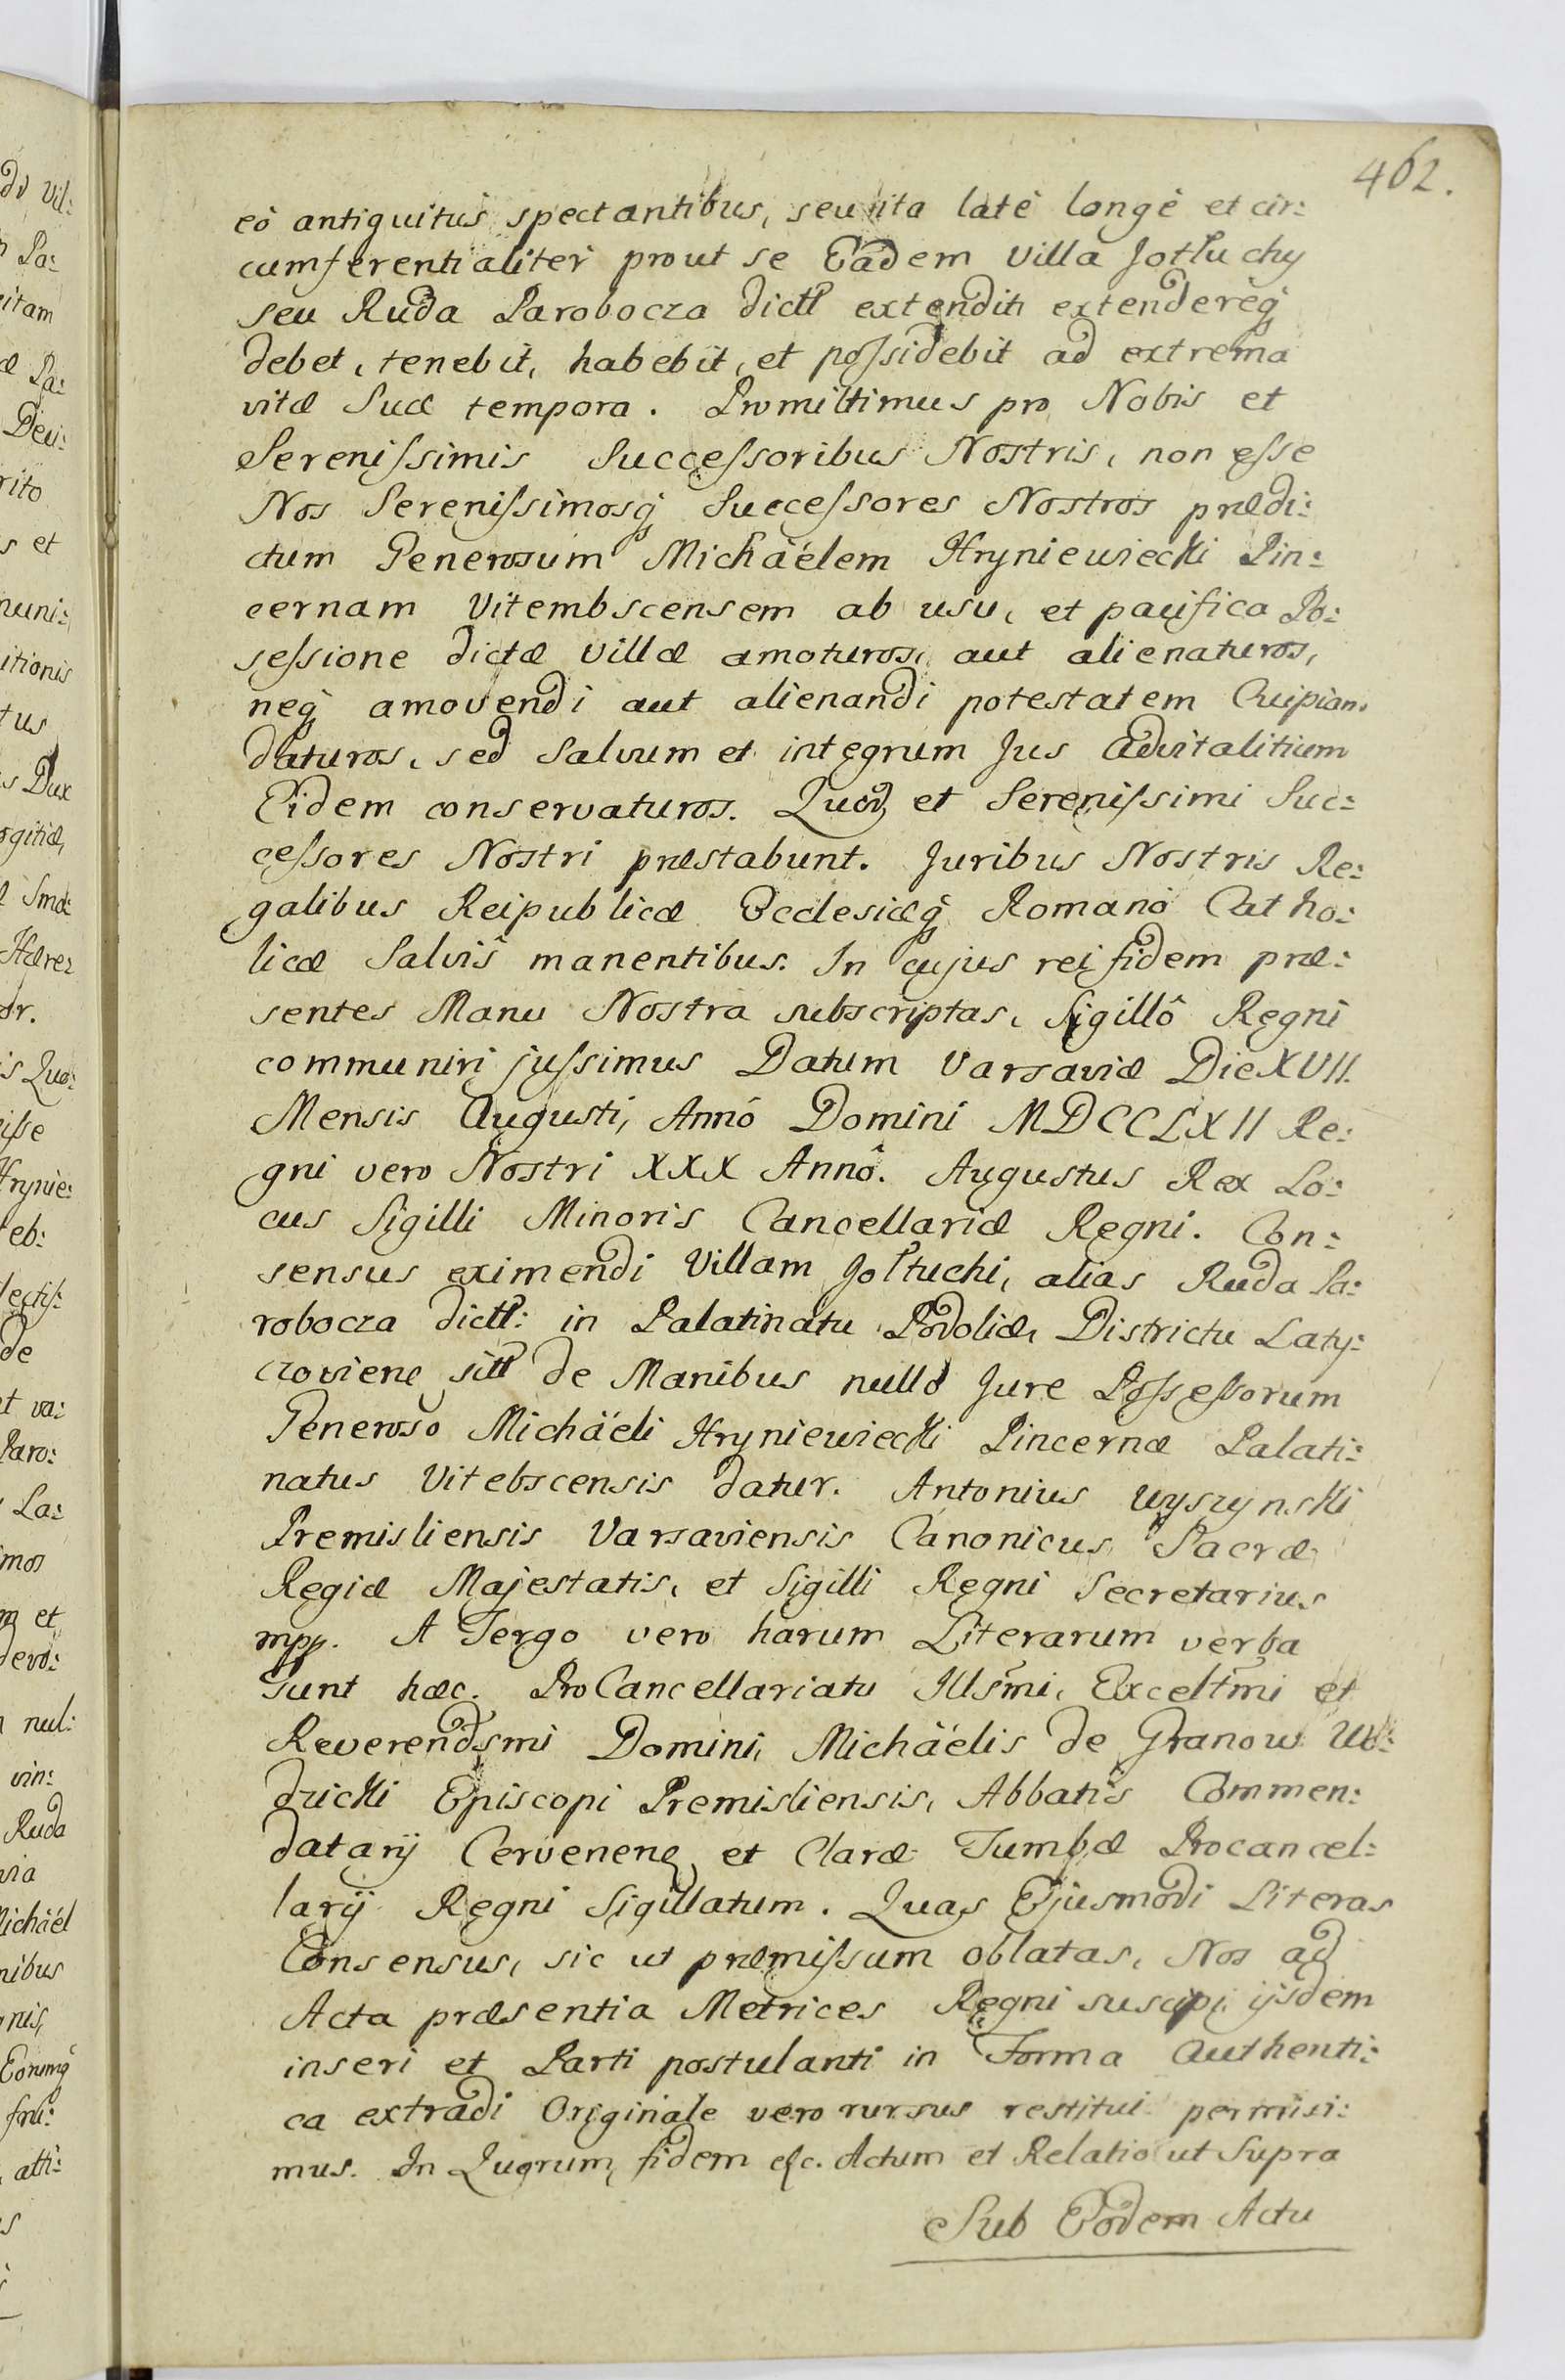 462.
eò antiquitus spectantibus, seu ita latè longè et cir:
cumferentialiter prout se Eadem Villa Jotłuchy
seu Ruda Parobocza dictt extendit extendereq;
debet, tenebit, habebit, et poſsidebit ad extrema
vitæ Suæ tempora. Promittimus pro Nobis et
Sereniſsimis Succeſsoribus Nostris, non eſse
Nos Sereniſsimosq; Succeſsores Nostros prædi:
ctum Generosum Michäélem Hryniewiecki Pin:
cernam Vitembscensem ab usu, et pacifica Po:
seſsione dictæ Villæ amoturos, aut alienaturos,
neq; amovendi aut alienandi potestatem Cuipiam
daturos, sed Salvum et integrum Jus Advitalitium
Eidem conservaturos. Quod et Sereniſsimi Suc:
ceſsores Nostri præstabunt. Juribus Nostris Re:
galibus Reipublicæ Ecclesiæq; Romano Catho:
licæ Salvis manentibus. In cujus rei fidem præ:
sentes Manu Nostra subscriptas, Sigillô Regni
communiri juſsimus Datum Varsaviæ Die XVII.
Mensis Augusti, Annó Domini MDCCLXII Re:
gni vero Nostri XXX Annô. Augustus Rex Lo:
cus Sigilli Minoris Cancellariæ Regni. Con:
sensus eximendi Villam Jołtuchi, alias Ruda Pa:
robocza dictt: in Palatinatu Podoliæ, Districtu Laty:
czoviene sitt de Manibus nullo Jure Poſseſsorum
Generoso Michäéli Hryniewiecki Pincernæ Palati:
natus Vitebscensis datur. Antonius Wyszynski
Premisliensis Varsaviensis Canonicus Sacræ
Regiæ Majestatis, et Sigilli Regni Secretarius
mpp. A Tergo vero harum Literarum verba
sunt hæc. ProCancellariatu Illsmi, Exceltmi et
Reverendsmi Domini, Michäélis de Granow Wo:
dzicki Episcopi Premisliensis, Abbatis Commen:
datarij Cervenen et Claræ Tumbæ Procancel:
larij Regni Sigillatum. Quas Ejusmodi Literas
Consensus, sic ut præmiſsum oblatas, Nos ad
Acta præsentia Metrices Regni suscipi, ijsdem
inseri et Parti postulanti in Forma Authenti:
ca extradi Originale vero rursus restitui permisi:
mus. In Quorum fidem etc. Actum et Relatio ut Supra
Sub Eodem Actu